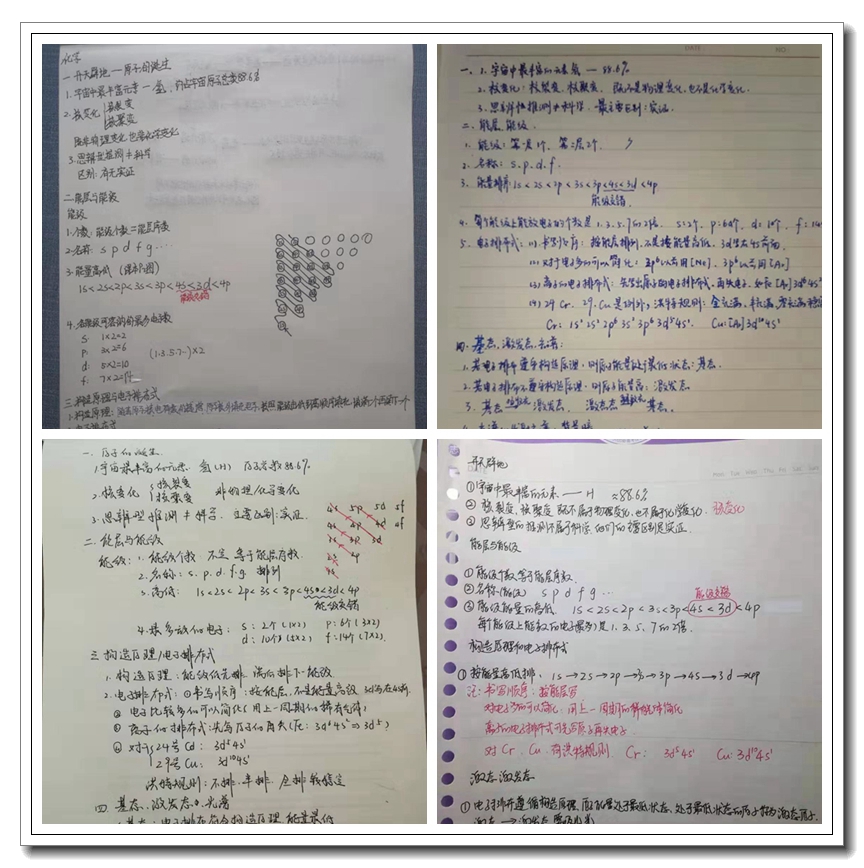 化学
一 开天辟地——原子的诞生
1.宇宙中最丰富元素——氢, 约占宇宙原子总数88.6%
2.核变化 核裂变
核聚变
既非物理变化也非化学变化
3.思辨型推测≠科学
区别:有无实证
二.能层与能级
能级
1.个数:能级个数=能层序数
2.名称: s p d f g …
3.能量高低
1s<2s<2p<3s<3p<4s<3d<4p
能级交错
4.各能级可容纳的最多电子数
s: 1×2=2
p: 3×2=6 (1.3.5.7…)×2
d: 5×2=10
f: 7×2=14
三.构造原理与电子排布式
1.构造原理:
DATE NO.
一、1.宇宙中最丰富的元素氢 — 88.6%
2.核变化:核裂变、核聚变、既不是物理变化,也不是化学变化.
3.思辨性推测≠科学. 最主要区别:实证.
二.能层 能级.
1.能级:第一层1个,第二层2个.
2.名称: s. p. d. f.
3.能量排序:1s<2s<2p<3s<3p<4s<3d<4p
能级交错.
4.每个能级上能放电子的个数是1.3.5.7的2倍. s:2个, p:6个, d:10个, f:14
5.电子排布式:(1)书写顺序:按能层排列,不是按能量高低,3d写在4s前面.
(2)对于电子多的可以简化:
(3)离子的电子排布式:先写出原子的电子排布式,再失电子.
(4)24 Cr. 29.Cu是例外,洪特规则:全充满、半充满、
Cr: 1s² 2s² 2p⁶ 3s² 3p⁶ 3d⁵4s¹. Cu:[Ar]3d¹⁰4s¹
四. 基态,激发态,光谱:
1.若电子排布遵守构造原理,则原子能量处于最低状态:基态.
2.若电子排布不遵守构造原理,则原子能量高:激发态
3.基态 激发态. 激发态 基态.
一.原子的诞生.
1宇宙最丰富的元素 氢(H) 原子总数88.6%
2.核变化 核裂变
核聚变 非物理化学变化
3.思辨型推测≠科学. 主要区别:实证.
4s 5p 5d 5f
二.能层与能级
能级:1.能级个数 不定 等于能层序数.
2.名称:s. p. d. f. g 排列
3.高低: 1s<2s<2p<3s<3p<4s<3d<4p
能级交错
4.最多放的电子: s:2个(1×2) p:6个(3×2)
d:10个(5×2) f:14个(7×2).
三 构造原理/电子排布式
1.构造原理:能级低先排 满后排下一能级.
2.电子排布式:①书写顺序:按能层,不是能量高低 3d写在4s前.
② 电子比较多的可以简化(用上一周期的稀有气体)
③ 离子的排布式:先写原子的再失(Fe: 3d⁶4s²⇒3d⁵)
④ 对于24号Cd: 3d⁵4s¹
29号Cu: 3d¹⁰4s¹
洪特规则:不排.半排.全排 较稳定
四.基态.激发态.光谱
1.基态:电子排布符合构造原理.能量最低
Mon Tue Wed Thu Fri Sat Sun
开天辟地
①宇宙中最丰富的元素——H ≈88.6%
②核裂变,核聚变 既不属于物理变化,也不属于化学变化. 核变化
③思辨型的推测不属于科学,他们的 区别是实证.
能层与能级
①能级个数等于能层序数.
②名称(能级) s p d f g …
能级交错
③能级能量的高低. 1s<2s<2p<3s<3p<4s<3d<4p
每个能级上能放的电子(最多)是1.3.5.7的2倍.
构造原理和电子排布式
①按能量高低排. 1s→2s→2p→3s→3p→4s→3d→4p
注:书写顺序:按能层写
对电子多的可以简化,用上一周期的稀有气体简化
离子的电子排布式,先写原子再失电子.
对Cr.Cu.符洪特规则. Cr: 3d⁵4s¹ Cu:3d¹⁰4s¹
基态.激发态
①电子排布遵循构造原理,原子能量处于最低状态,处于最低状态的原子称为基态原子.